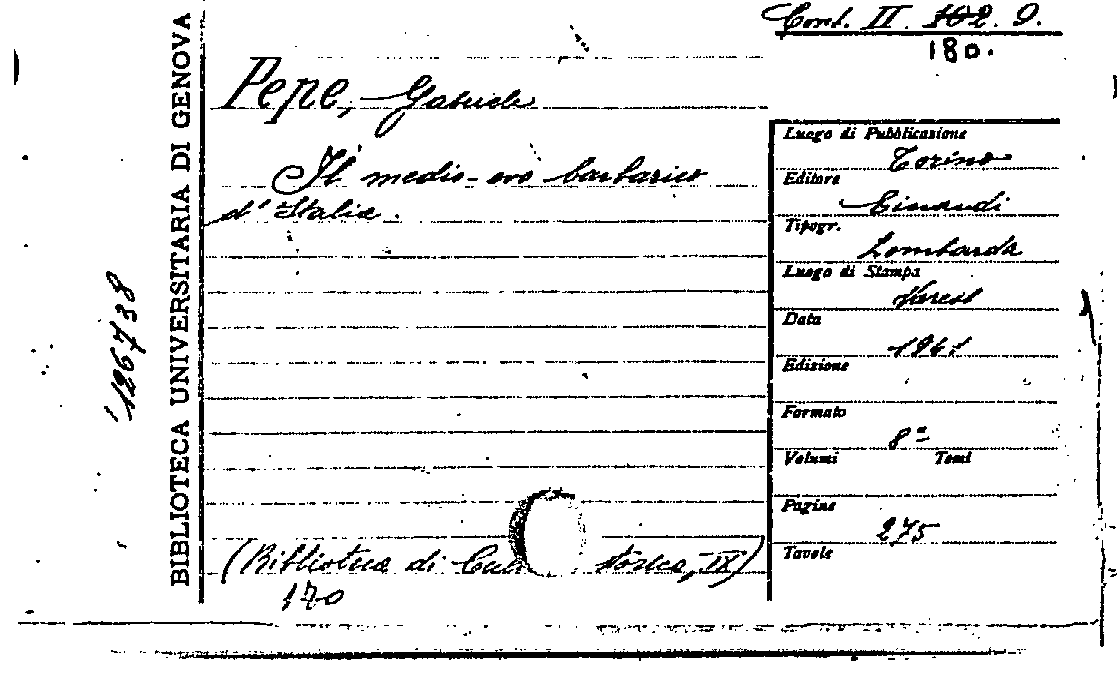 Conf. II. 102. 9.
180.
Pepe, Gabriele
Il medio-evo barbarico
d'Italia.
(Biblioteca di Cul storica, IX)
170
Luogo di Pubblicazione
Torino
Editore
Einaudi
Tipogr.
Lombarda
Luogo di Stampa
Varese
Data
1941
Edizione
Formato
8°
Volumi Tomi
Pagine
275
Tavole
BIBLIOTECA UNIVERSITARIA DI GENOVA
126738